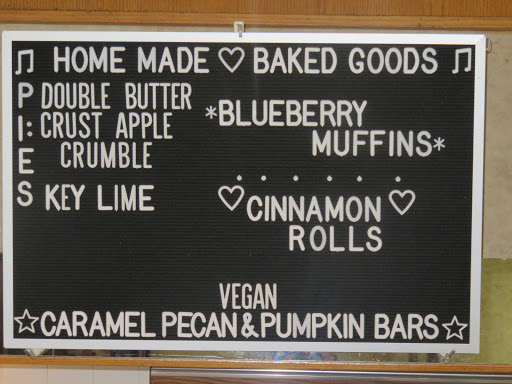 ♫ HOME MADE ♡ BAKED GOODS ♫
PIES:
DOUBLE BUTTER
CRUST APPLE
CRUMBLE
KEY LIME
*BLUEBERRY
MUFFINS*
. . . . . .
♡ CINNAMON ♡
ROLLS
VEGAN
☆ CARAMEL PECAN & PUMPKIN BARS ☆